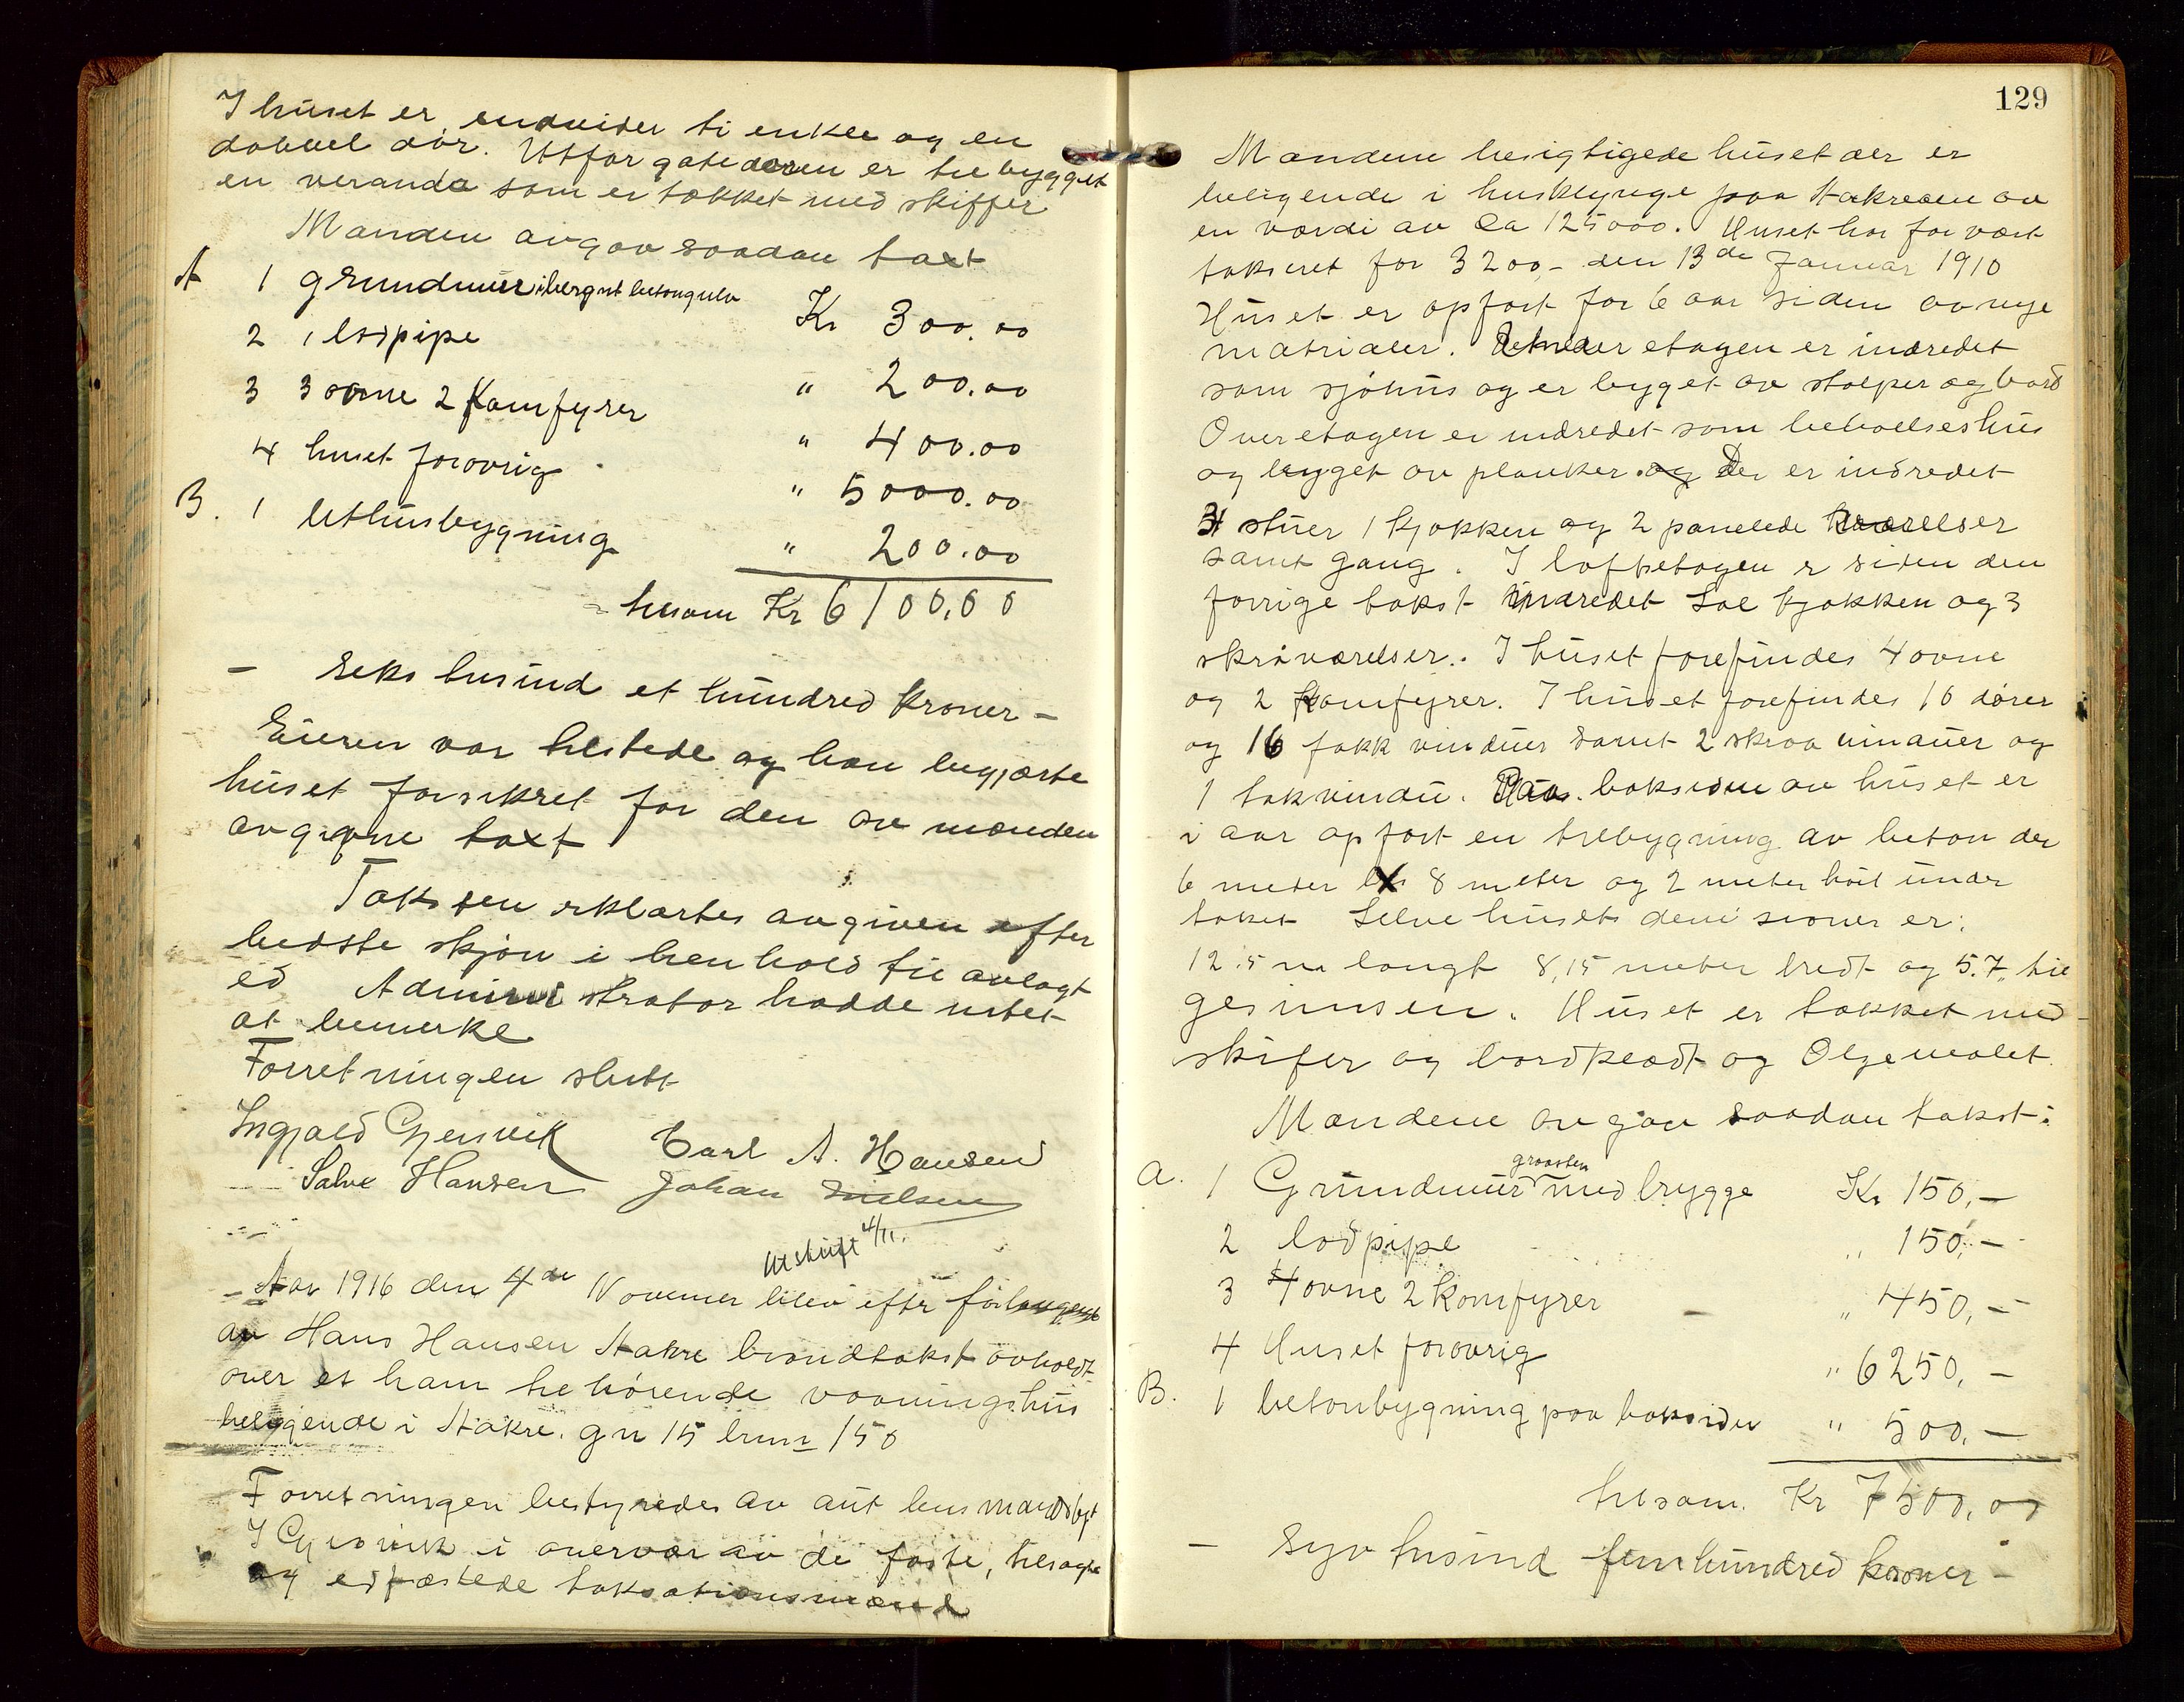 I huset er endvider ti enkle og en
dobbel dør. Utfor gatedøren er tilbygget
en veranda som er tækket med skiffer
Mænden avgav saadan taxt
A 1 grundmur i berg nt betongulv Kr 300.00
2 1 lodpipe " 200.00
3 3 ovne 2 Komfyrer " 400.00
4 huset forøvrig " 5000.00
B. 1 uthusbygning " 200.00
tilsam Kr 6100,00
- Seks tusind et hundred kroner -
Eieren var tilstede og han begjærte
huset forsikret for den av mænden
avgivne taxt
Taksten erklærtes avgiven efter
bedste skjøn i henhold til avlagt
ed Administrator hadde intet
at bemerke
Forretningen slutt
Ingvald Gjersvik Carl A. Hansen
Salve Hansen Johan Nielsen
Utskrift 4/11.
- Aar 1916 den 4de Novemer blev efter forlangende
av Hans Hansen Aakre brandtakst avholdt
over et ham tilhørende vaaningshus
beliggende i Aakre. gn 15 brn 150
Forretningen bestyredes av aut lensmandsbet
I Gjersvik i overvær av de faste, tilsagte
og edfæstede taksationsmænd
129
Mændene besigtigede huset der er
beligende i husklynge paa Aakreøen av
en værdi av Ca 125000. Huset har før vært
takseret for 3200,- den 13de Januar 1910
Huset er opført for 6 aar siden av nye
matrialer. Underetagen er indredet
som sjøhus og er bygget av stolper og bord
Overetagen er indredet som beboelseshus
og bygget av planker. og Der er indredet
3 stuer 1 kjøkken og 2 panelede værelser
samt gang. I loftsetagen er siden den
forrige takst indredet Sal kjøkken og 3
skråværelser. I huset forefindes 4 ovne
og 2 komfyrer. I huset forefindes 10 dører
og 16 fakk vinduer samt 2 skraa vinduer og
1 takvindu. Paa baksiden av huset er
i aar opført en tilbygning av beton der
6 meter x 8 meter og 2 meter høit under
taket Selve husets demisioner er:
12.5 m langt 8,15 meter bredt og 5.7. til
gesimsen. Huset er tækket med
skifer og bordklædt og Oljemalet.
Mændene avgav saadan takst:
a. 1 Grundmur graasten med brygge Kr 150,-
2 lodpipe " 150,-
3 4 ovne 2 komfyrer " 450,-
4 Huset forøvrig " 6250,-
B. 1 betonbygning paa baksiden " 500,-
tilsam. Kr 7500,00
- Syv tusind femhundred kroner -